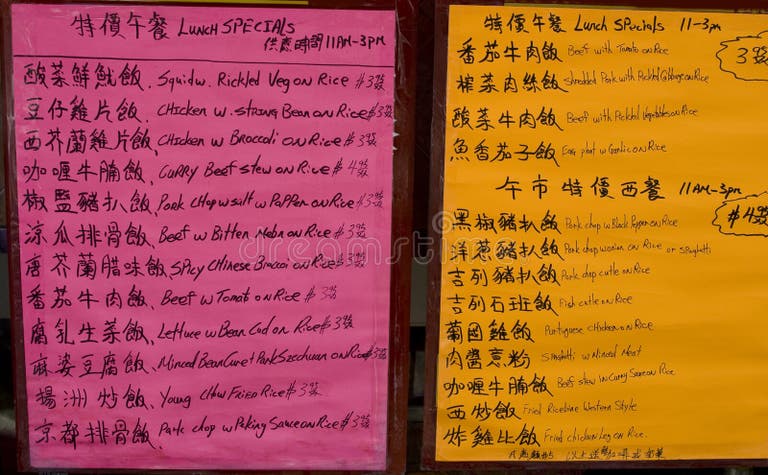 特價午餐 LUNCH SPECIALS
供應時間 11AM-3PM
酸菜鮮魷飯、Squid w. Rickled Veg on Rice $3
豆仔雞片飯、CHICKEN w. STRING Bean on Rice $3
西芥蘭雞片飯、CHICKEN w Broccoli on Rice $3
咖喱牛腩飯、CURRY Beef stew on Rice $4
椒盐豬扒飯、Pork chop w salt w Pepper on Rice $3
涼瓜排骨飯、Beef w Bitten Meln on Rice $3
唐芥蘭腊味飯 Spicy Chinese Broccoi on Rice $3
番茄牛肉飯、Beef w Tomato on Rice $3
腐乳生菜飯、Lettuce w Bean Cod on Rice $3
麻婆豆腐飯、Minced Bean Curet Pork Szechuan on Rice $3
揚洲炒飯、Young Chow Fried Rice $3
京都排骨飯、Pork chop w Peking Sauce on Rice $3
特價午餐 Lunch Specials 11-3pm
番茄牛肉飯 Beef with Tomato on Rice
榨菜肉絲飯 Shredded Pork with Pickled Cabbage on Rice
酸菜牛肉飯 Beef with Pickled Vegetables on Rice
魚香茄子飯 Egg plant w Garlic on Rice
午市特價西餐 11AM-3PM
黑椒豬扒飯 Pork chop w Black Pepper on Rice
洋葱豬扒飯 Pork chop w onion on Rice or spaghetti
吉列豬扒飯 Pork chop cutle on Rice
吉列石班飯 Fish cutle on Rice
葡國雞飯 Portuguese Chicken on Rice
肉醬意粉 Spaghetti w Minced Meat
咖喱牛腩飯 Beef stew in Curry Sauce on Rice
西炒飯 Fried Rice in a Western Style
炸雞比飯 Fried chicken Leg on Rice